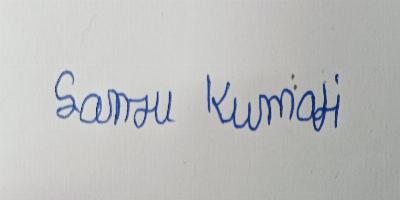 Sannu Kumari